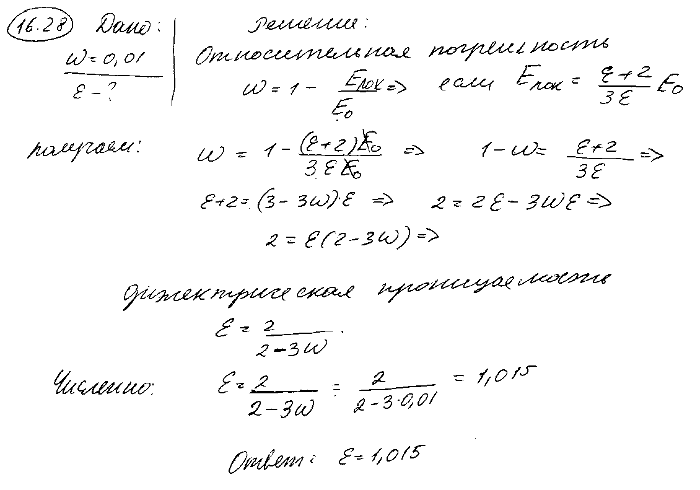 16.28 Дано: Решение:
ω = 0,01 Относительная погрешность
ε - ? ω = 1 - Eлок/E₀ => если Eлок = (ε+2)/(3ε) E₀
получаем: ω = 1 - (ε+2)E₀/(3εE₀) => 1-ω = (ε+2)/(3ε) =>
ε+2 = (3-3ω)·ε => 2 = 2ε - 3ωε =>
2 = ε(2-3ω) =>
диэлектрическая проницаемость
ε = 2/(2-3ω).
Численно: ε = 2/(2-3ω) = 2/(2-3·0,01) = 1,015
Ответ: ε = 1,015